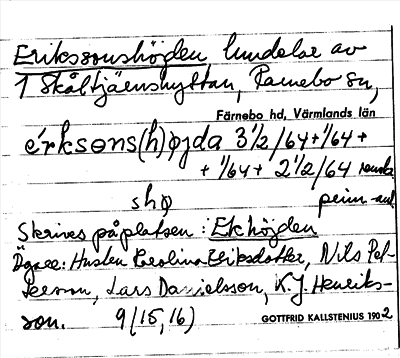 Erikssonshöjden, lundelar av
1 Skåltjäenshyttan, Ramebo sn,
Färnebo hd, Värmlands län
e´rksons(h)øjda 3 1/2/64+1/64+
+ 1/64+ 2 1/2/64
shø
Skrives på platsen: Ekhöjden
Ägare: Huslen Carolina Eriksdotter, Nils Pet-
tersson, Lars Danielsson, K.J. Henriks-
son. 9(15,16)
GOTTFRID KALLSTENIUS 1902